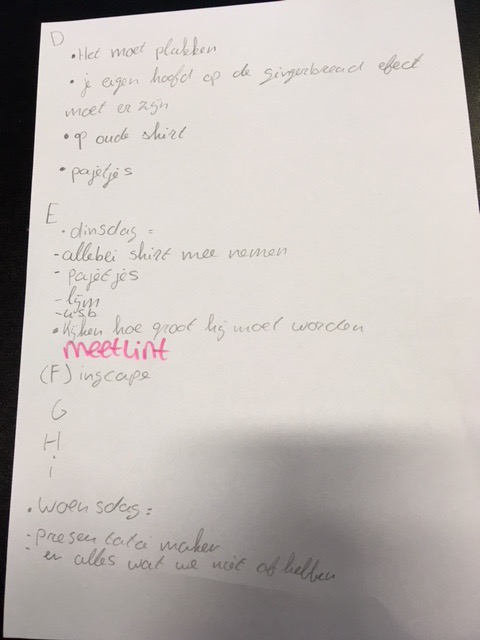 D
• Het moet plakken
• je eigen hoofd op de gingerbread effect
moet er zijn
• op oude shirt
• pajetjes
E
• dinsdag =
- allebei shirt mee nemen
- pajetjes
- lijm
- usb
• kijken hoe groot hij moet worden
meetlint
(F) inscape
G
H
i
• Woensdag =
- presentatie maken
en alles wat we niet af hebben